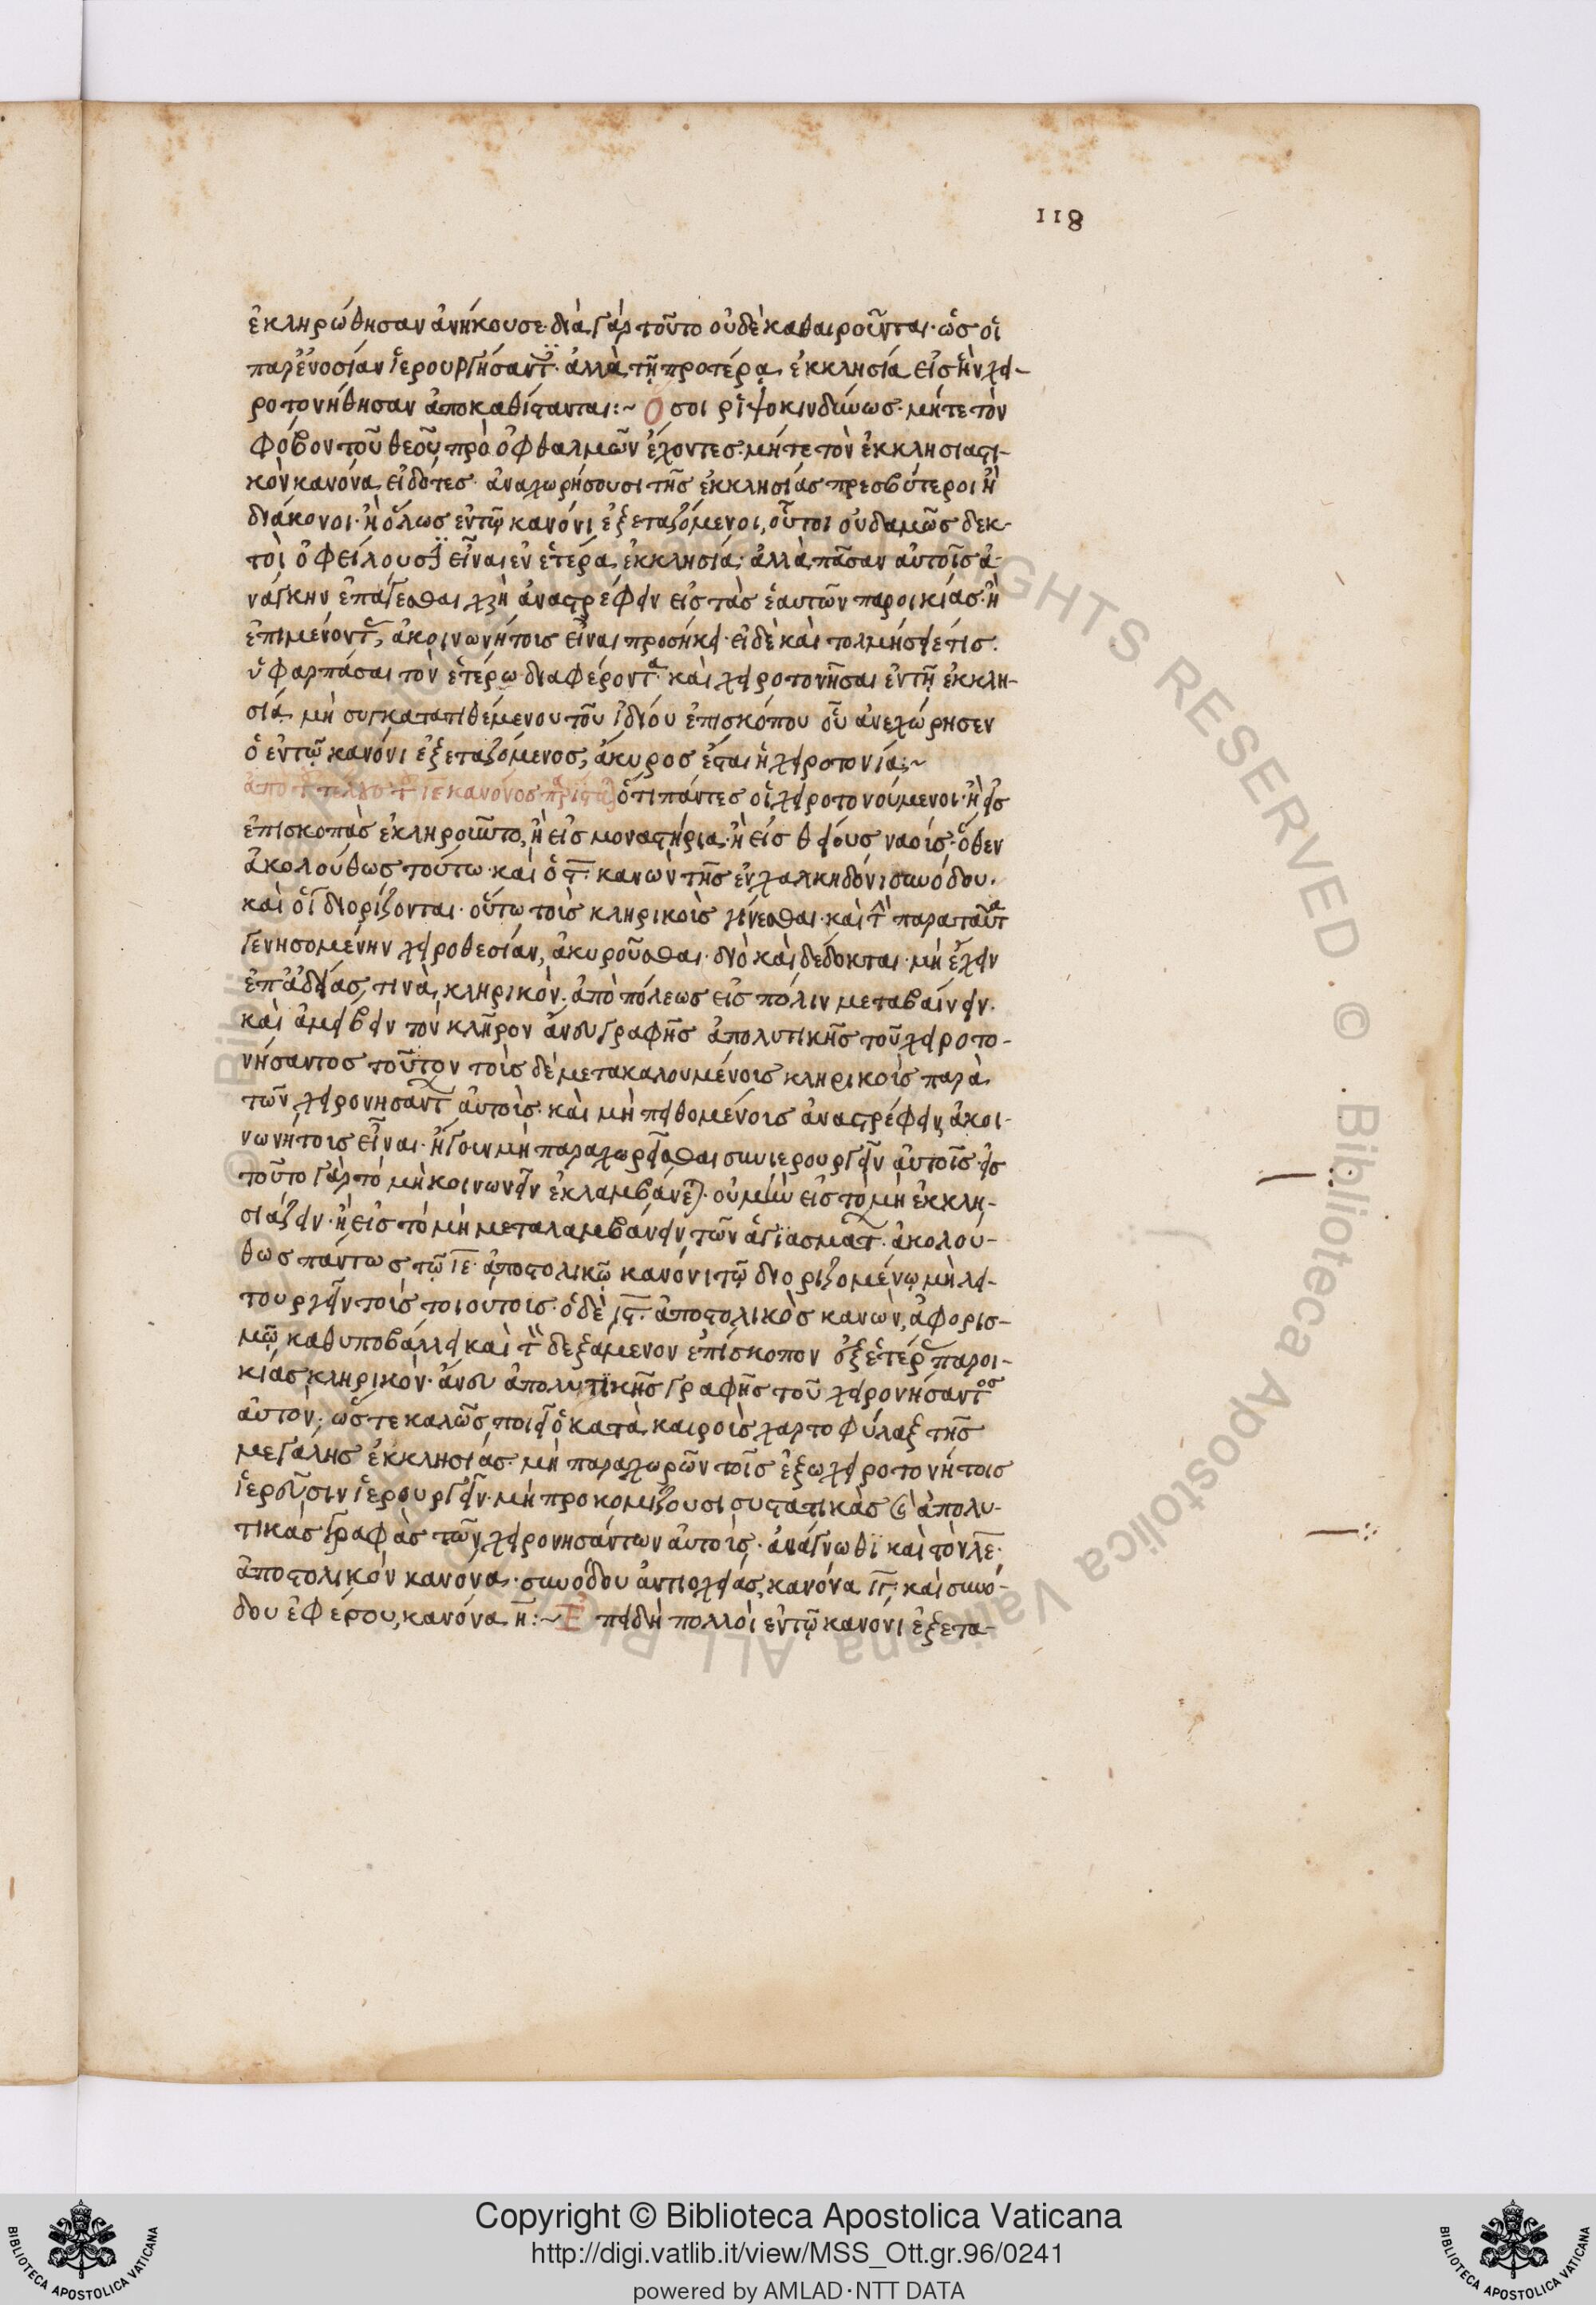 118
ἐκληρώθησαν ἀνήκουσε· διὰ γὰρ τοῦτο οὐδὲ καθαιροῦνται· ὡς οἱ
παρενοσίαν ἱερουργήσαντ· ἀλλὰ τῇ προτέρᾳ ἐκκλησίᾳ εἰς ἣν χει-
ροτονήθησαν ἀποκαθίστανται:~ Ὅσοι ῥιψοκινδύνως· μήτε τὸν
φόβον τοῦ θεοῦ πρὸ ὀφθαλμῶν ἔχοντες· μήτε τὸν ἐκκλησιαστι-
κὸν κανόνα εἰδότες· ἀναχωρήσουσι τῆς ἐκκλησίας πρεσβύτεροι ἢ
διάκονοι· ἢ ὅλως ἐν τῷ κανόνι ἐξεταζόμενοι, οὗτοι οὐδαμῶς δεκ-
τοὶ ὀφείλουσϊ εἶναι ἐν ἑτέρα ἐκκλησία· ἀλλὰ πᾶσαν αὐτοῖς ἀ-
νάγκην ἐπάγεσθαι χρὴ ἀναστρέφειν εἰς τὰς ἑαυτῶν παροικίας· ἢ
ἐπιμένοντ, ἀκοινωνήτοις εἶναι προσήκει· εἰ δὲ καὶ τολμήσειέ τις.
ὑφαρπάσαι τὸν ἑτέρω διαφέροντα· καὶ χειροτονῆσαι ἐν τῇ ἐκκλη-
σίᾳ μὴ συγκατατιθέμενου τοῦ ἰδίου ἐπισκόπου οὗ ἀνεχώρησεν
ὁ ἐν τῷ κανόνι ἐξεταζόμενος, ἄκυρος ἔσται ἡ χειροτονία:~
ὅτι πάντες οἱ χειροτονούμενοι· ἢ εἰς
ἐπισκοπὰς ἐκληροῦντο, ἢ εἰς μοναστήρια· ἢ εἰς θείους ναούς· ὅθεν
ἀκολούθως τούτω· καὶ ὁ ϛ· κανὼν τῆς ἐν χαλκηδόνι συνόδου.
καὶ οἱ διορίζονται· οὕτω τοῖς κληρικοῖς γίνεσθαι· καὶ τὴν παρὰ ταῦτα
γενησομένην χειροθεσίαν, ἀκυροῦσθαι· διὸ καὶ δέδοκται· μὴ ἔχειν
ἐπ' ἀδείας, τινὰ κληρικὸν· ἀπὸ πόλεως εἰς πόλιν μεταβαίνειν.
καὶ ἀμείβειν τὸν κλῆρον ἄνευ γραφῆς ἀπολυτικῆς τοῦ χειροτο-
νήσαντος τοῦτον τοῖς δὲ μετακαλουμένοις κληρικοῖς παρὰ
τῶν χειρονησάντ αὐτοὶς· καὶ μὴ πειθομένοις ἀναστρέφειν, ἀκοι-
νωνήτοις εἶναι· ἤγουν μὴ παραχωρεῖσθαι συνιερουργεῖν αὐτοῖς· εἰς
τοῦτο γὰρ τὸ μὴ κοινωνεῖν ἐκλαμβάνεται· οὐ μὴν εἰς τὸ μὴ ἐκκλη-
σιάζειν· ἢ εἰς τὸ μὴ μεταλαμβάνειν, τῶν ἁγϊασμάτ· ἀκολού-
θως πάντως τῷ ιε· ἀποστολικῷ κανόνι τῷ διοριζομένῳ μὴ λει-
τουργεῖν τοῖς τοιούτοις· ὁ δὲ ιϛ· ἀποστολικὸς κανὼν, ἀφορισ-
μῷ καθυποβάλλει καὶ τὸν δεξάμενον ἐπίσκοπον ἐξ ἑτέρ παροι-
κίας κληρικόν· ἄνευ ἀπολυτϊκῆς γραφῆς τοῦ χειρονήσαντος
αὐτόν· ὥστε καλῶς ποιεῖ ὁ κατὰ καιροὺς χαρτοφύλαξ τῆς
μεγάλης ἐκκλησίας· μὴ παραχωρῶν τοῖς ἔξω χειροτονήτοις
ἱεροῦσιν ἱερουργεῖν· μὴ προκομίζουσι συστατικὰς καὶ ἀπολυ-
τικὰς γραφὰς τῶν χειρονησάντων αὐτοὶς· ἀνάγνωθϊ καὶ τὸν λε·
ἀποστολικὸν κανόνα· συνόδου ἀντιοχείας, κανόνα ιγ· καὶ συνό-
δου ἐφέσου, κανόνα η:~ Ἐπειδὴ πολλοὶ ἐν τῷ κανόνι ἐξετα-
Copyright © Biblioteca Apostolica Vaticana
http://digi.vatlib.it/view/MSS_Ott.gr.96/0241
powered by AMLAD·NTT DATA